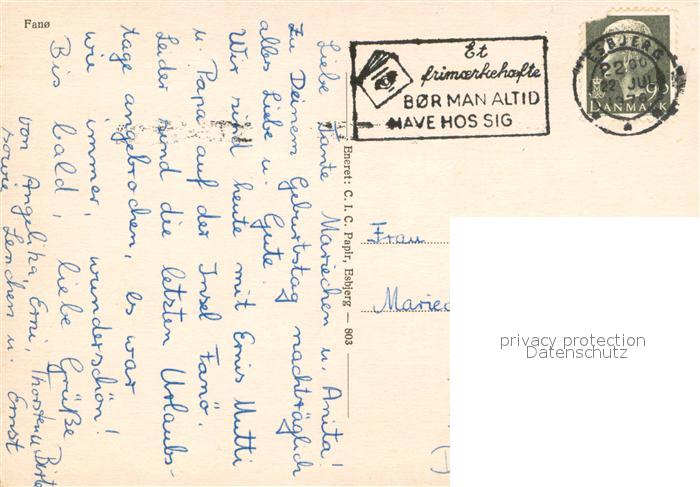 Fanø
Liebe Tante Mariechen u. Anita!
Zu Deinem Geburtstag nachträglich
alles Liebe u. Gute.
Wir sind heute mit Ernis Mutti
u. Papa auf der Insel Fanö.
Leider sind die letzten Urlaubs-
tage angebrochen, es war
wie immer, wunderschön!
Bis bald, liebe Grüße
von Angelika, Erni, Thorsten u. Birte
sowie Lenchen u. Ernst
Eneret: C. I. C. Papir, Esbjerg — 803
Et
frimærkehæfte
BØR MAN ALTID
HAVE HOS SIG
ESBJERG
22 JUL
90
DANMARK
Frau
Mariec
privacy protection
Datenschutz